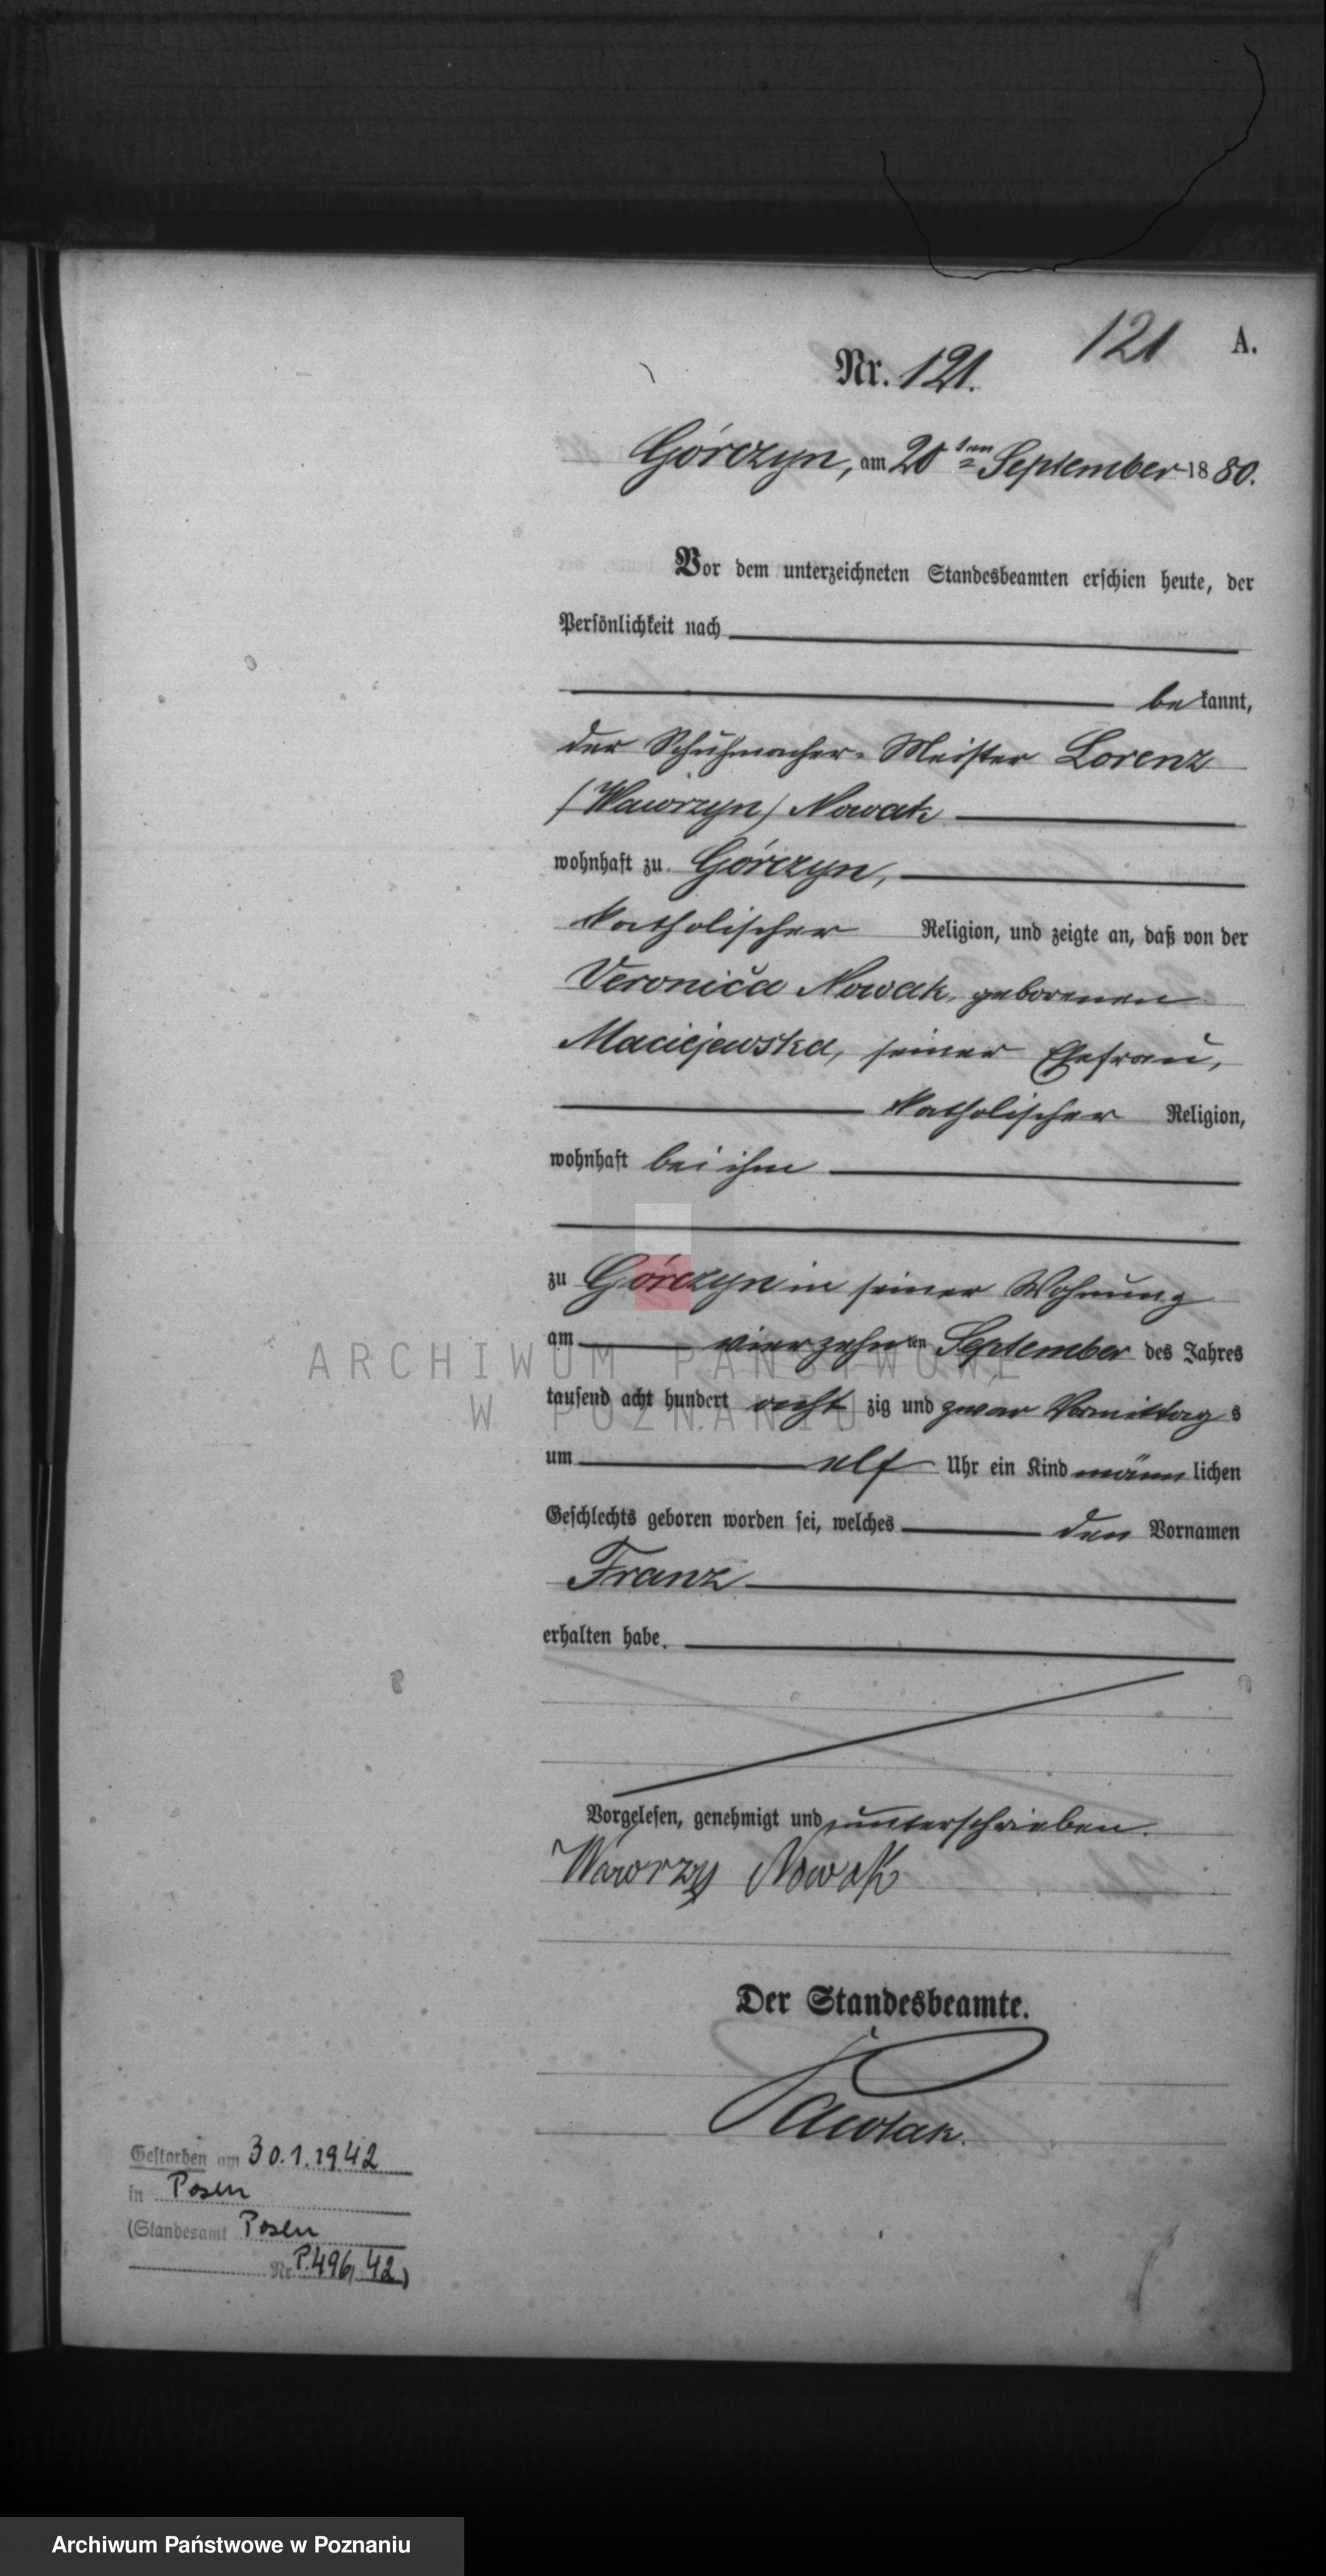 121 A.
Nr. 121.
Górczyn, am 20ten September 1880.
Vor dem unterzeichneten Standesbeamten erschien heute, der
Persönlichkeit nach
bekannt,
der Schuhmacher-Meister Lorenz
(Wawrzyn) Nowak
wohnhaft zu Górczyn,
katholischer Religion, und zeigte an, daß von der
Veronica Nowak, geborenen
Maciejewska, seiner Ehefrau,
katholischer Religion,
wohnhaft bei ihm
zu Górczyn in seiner Wohnung
am vierzehnten September des Jahres
tausend acht hundert achtzig und zwar Vormittags
um elf Uhr ein Kind männlichen
Geschlechts geboren worden sei, welches den Vornamen
Franz
erhalten habe.
Vorgelesen, genehmigt und unterschrieben.
Wawrzy Nowak
Der Standesbeamte.
Pawlak.
Gestorben am 30.1.1942
in Posen
(Standesamt Posen
Nr. P.496/42)
ARCHIWUM PAŃSTWOWE
W POZNANIU
Archiwum Państwowe w Poznaniu